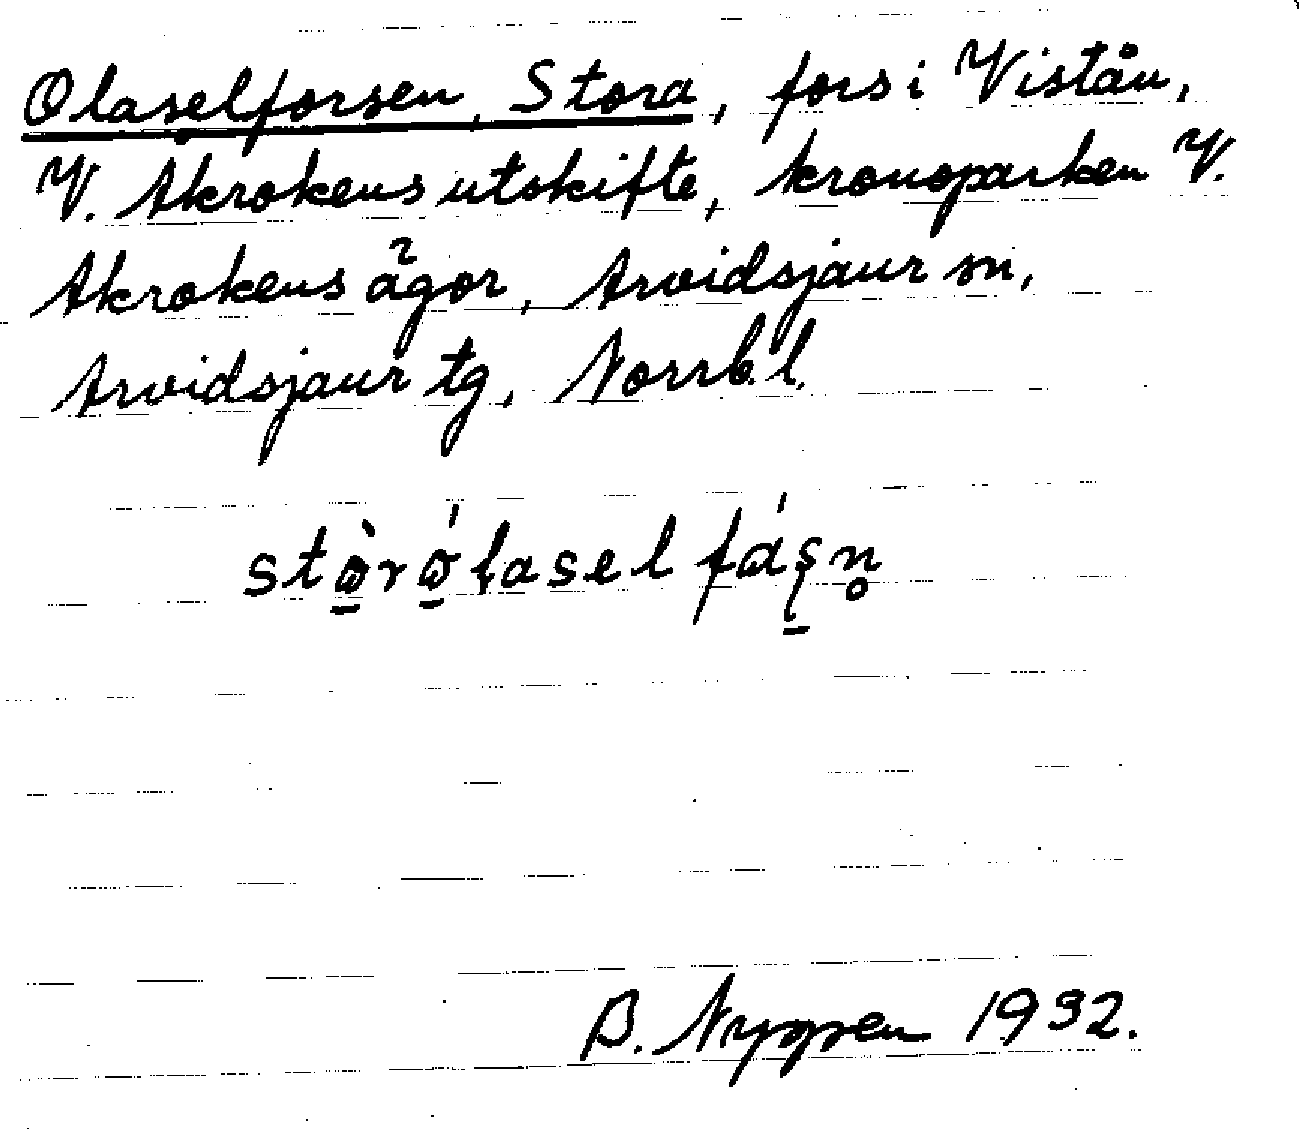 Olaselforsen, Stora, fors i Vistån,
V. Åkrokens utskifte, kronoparken V.
Åkrokens ägor, Arvidsjaur sn,
Arvidsjaur tg, Norrb. l.
B. Nygren 1932.